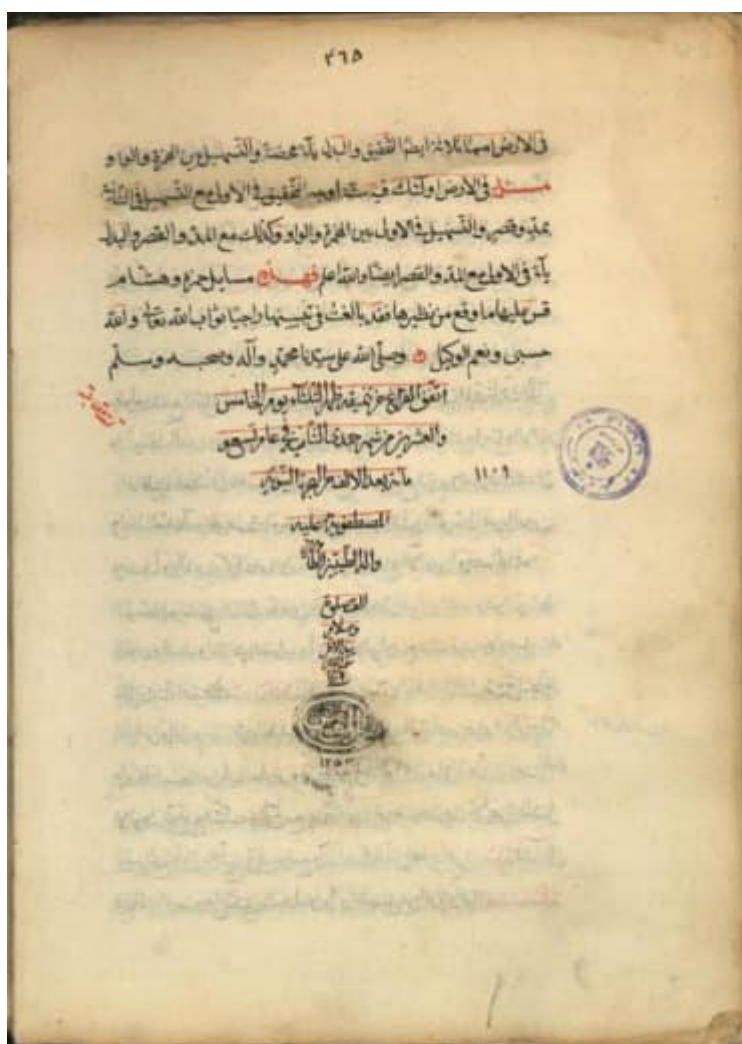 ٤٦٥
فى الارض امما ثلاثة ايضا التحقيق والبدل ياء محضة والتسهيل بين الهمزة والواو
مثل فى الارض اولئك فيه ستة اوجه التحقيق فى الاولى مع التسهيل فى الثانية
بمد وقصر والتسهيل فى الاولى بين الهمزة والواو وكذلك مع المد والقصر والبدل
ياء فى الاولى مع المد والقصر ايضا والله اعلم فهذه مسايل حمزة وهشام
قس عليها ما وقع من نظيرها فقد بالغت فى تبيينها راجيا ثواب الله تعالى والله
حسبى ونعم الوكيل وصلى الله على سيدنا محمد وآله وصحبه وسلم
اتفق الفراغ من تنميقه ظهر الثلثاء يوم الخامس
والعشرين من شهر جمدى الثانى فى عام تسع و
مائة بعد الالف من الهجرة النبوية
١١٠٩
المصطفوية عليه
وآله الطيبين
الصلوة
وسلام
١٢٥٢